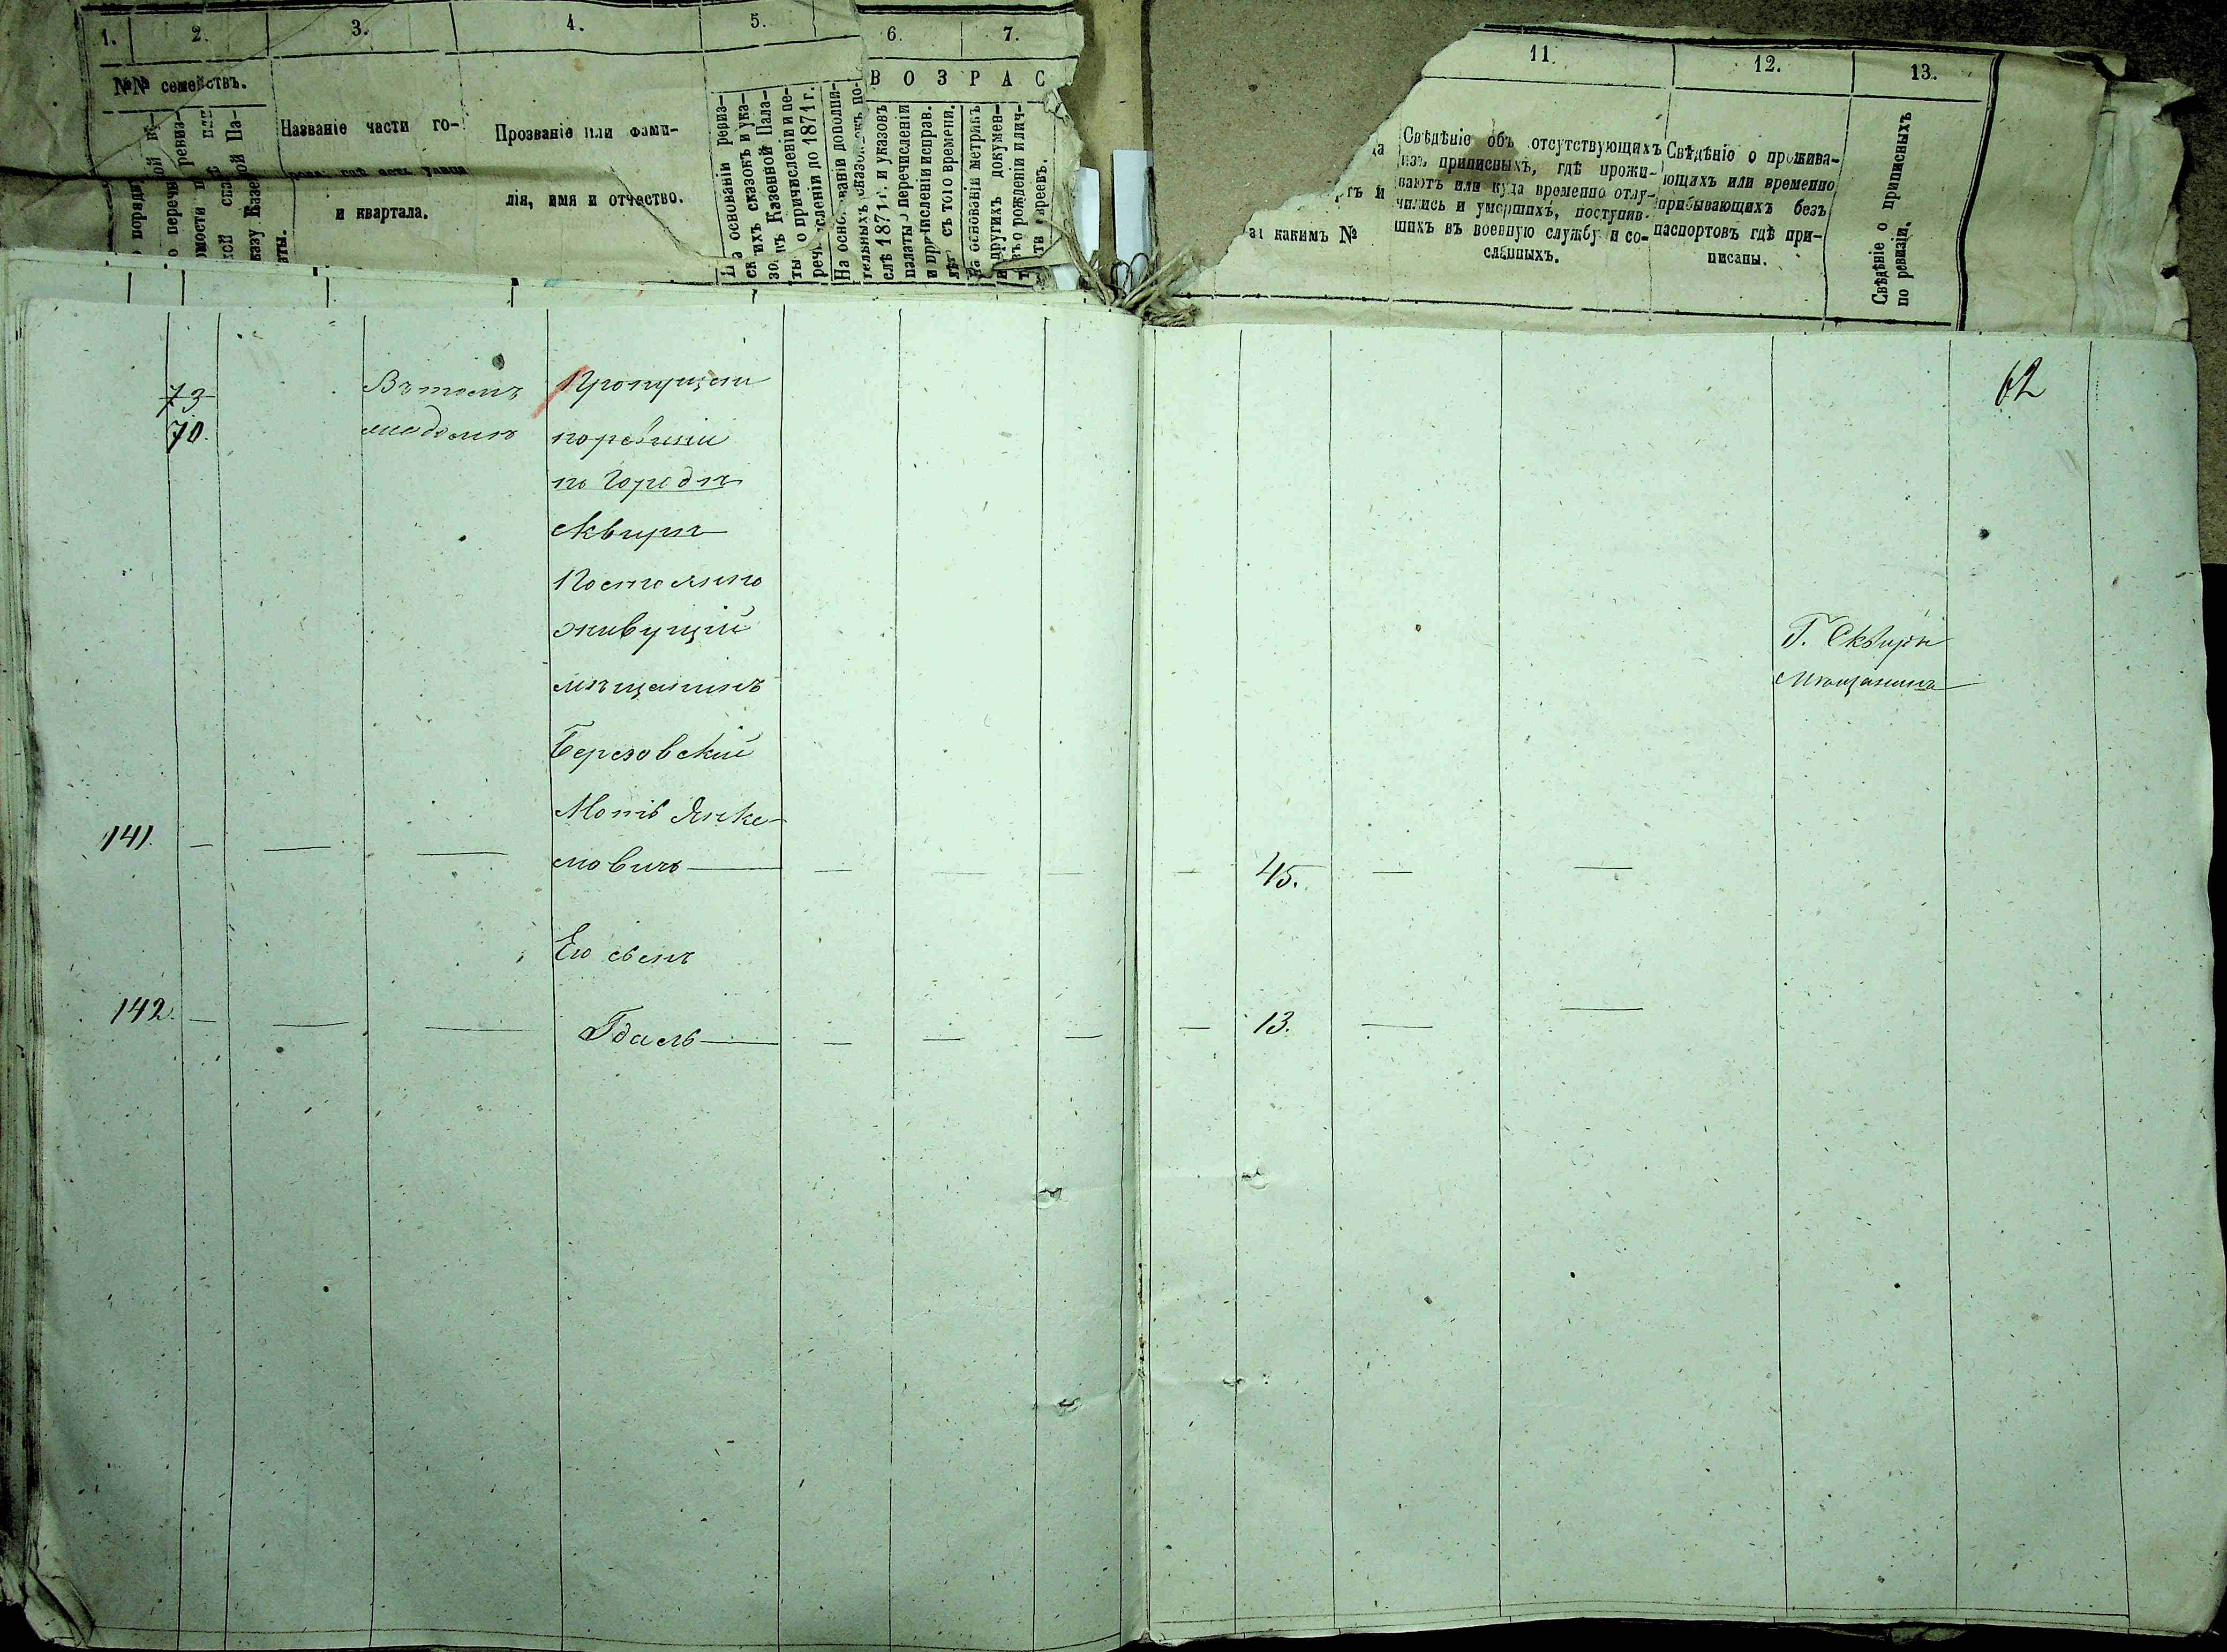 1. 2. 3. 4. 5. 6. 7.
№№ семействъ.
Названіе части го-
рода, гдѣ есть улица
и квартала.
Прозваніе или фами-
лія, имя и отчество.
На основаніи ревиз-
скихъ сказокъ и ука-
зовъ Казенной Пала-
ты о причисленіи и пе-
речисленіи до 1871 г.
На основаніи дополни-
тельныхъ сказокъ по-
слѣ 1871 г. и указовъ
палаты о перечисленіи
и причисленіи исправ.
лѣтъ съ того времени.
На основаніи метрикъ
и другихъ докумен-
товъ о рожденіи и лич-
ности евреевъ.
В О З Р А С
11. 12. 13.
какимъ №
Свѣдѣніе объ отсутствующихъ
изъ приписныхъ, гдѣ прожи-
ваютъ или куда временно отлу-
чились и умершихъ, поступив-
шихъ въ военную службу и со-
сланныхъ.
Свѣдѣніе о прожива-
ющихъ или временно
прибывающихъ безъ
паспортовъ гдѣ при-
писаны.
Свѣдѣніе о приписныхъ
по ревизіи.
62
73
70.
Въ томъ
Пропущен
по ревизіи
по Городѣ
Сквирѣ
Постоянно
живущій
мѣщанинъ
Березовскій
Мотъ Янке-
141. — — — мовичъ — — — — — 45. — —
Его сынъ
142. — — — Гдаль — — — — — 13. — —
Г. Сквиры
Мѣщанинъ